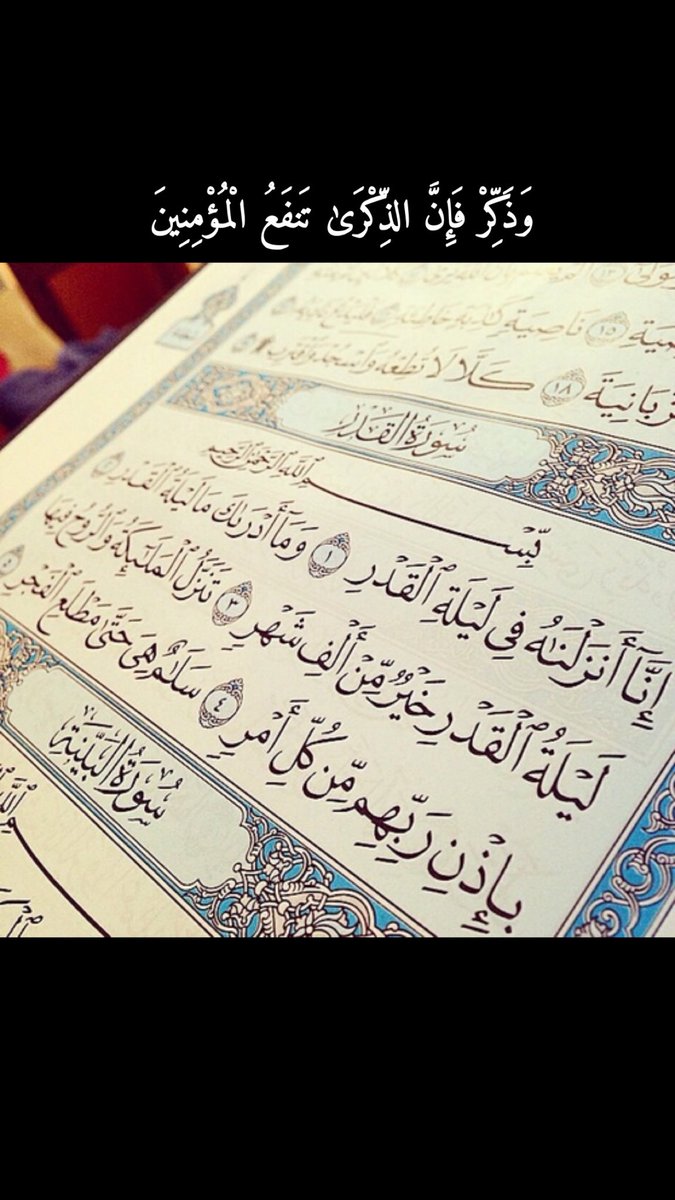 وَذَكِّرْ فَإِنَّ الذِّكْرَىٰ تَنفَعُ الْمُؤْمِنِينَ
١٥ نَاصِيَةٍ كَاذِبَةٍ خَاطِئَةٍ
١٨ كَلَّا لَا تُطِعْهُ وَاسْجُدْ وَاقْتَرِب
سُورَةُ القَدْرِ
بِسْمِ اللَّهِ الرَّحْمَٰنِ الرَّحِيمِ
إِنَّآ أَنزَلْنَٰهُ فِي لَيْلَةِ ٱلْقَدْرِ ١ وَمَآ أَدْرَىٰكَ مَا لَيْلَةُ ٱلْقَدْرِ
لَيْلَةُ ٱلْقَدْرِ خَيْرٌ مِّنْ أَلْفِ شَهْرٍ ٣ تَنَزَّلُ ٱلْمَلَٰٓئِكَةُ وَٱلرُّوحُ فِيهَا
بِإِذْنِ رَبِّهِم مِّن كُلِّ أَمْرٍ ٤ سَلَٰمٌ هِيَ حَتَّىٰ مَطْلَعِ ٱلْفَجْرِ ٥
سُورَةُ البَيِّنَةِ